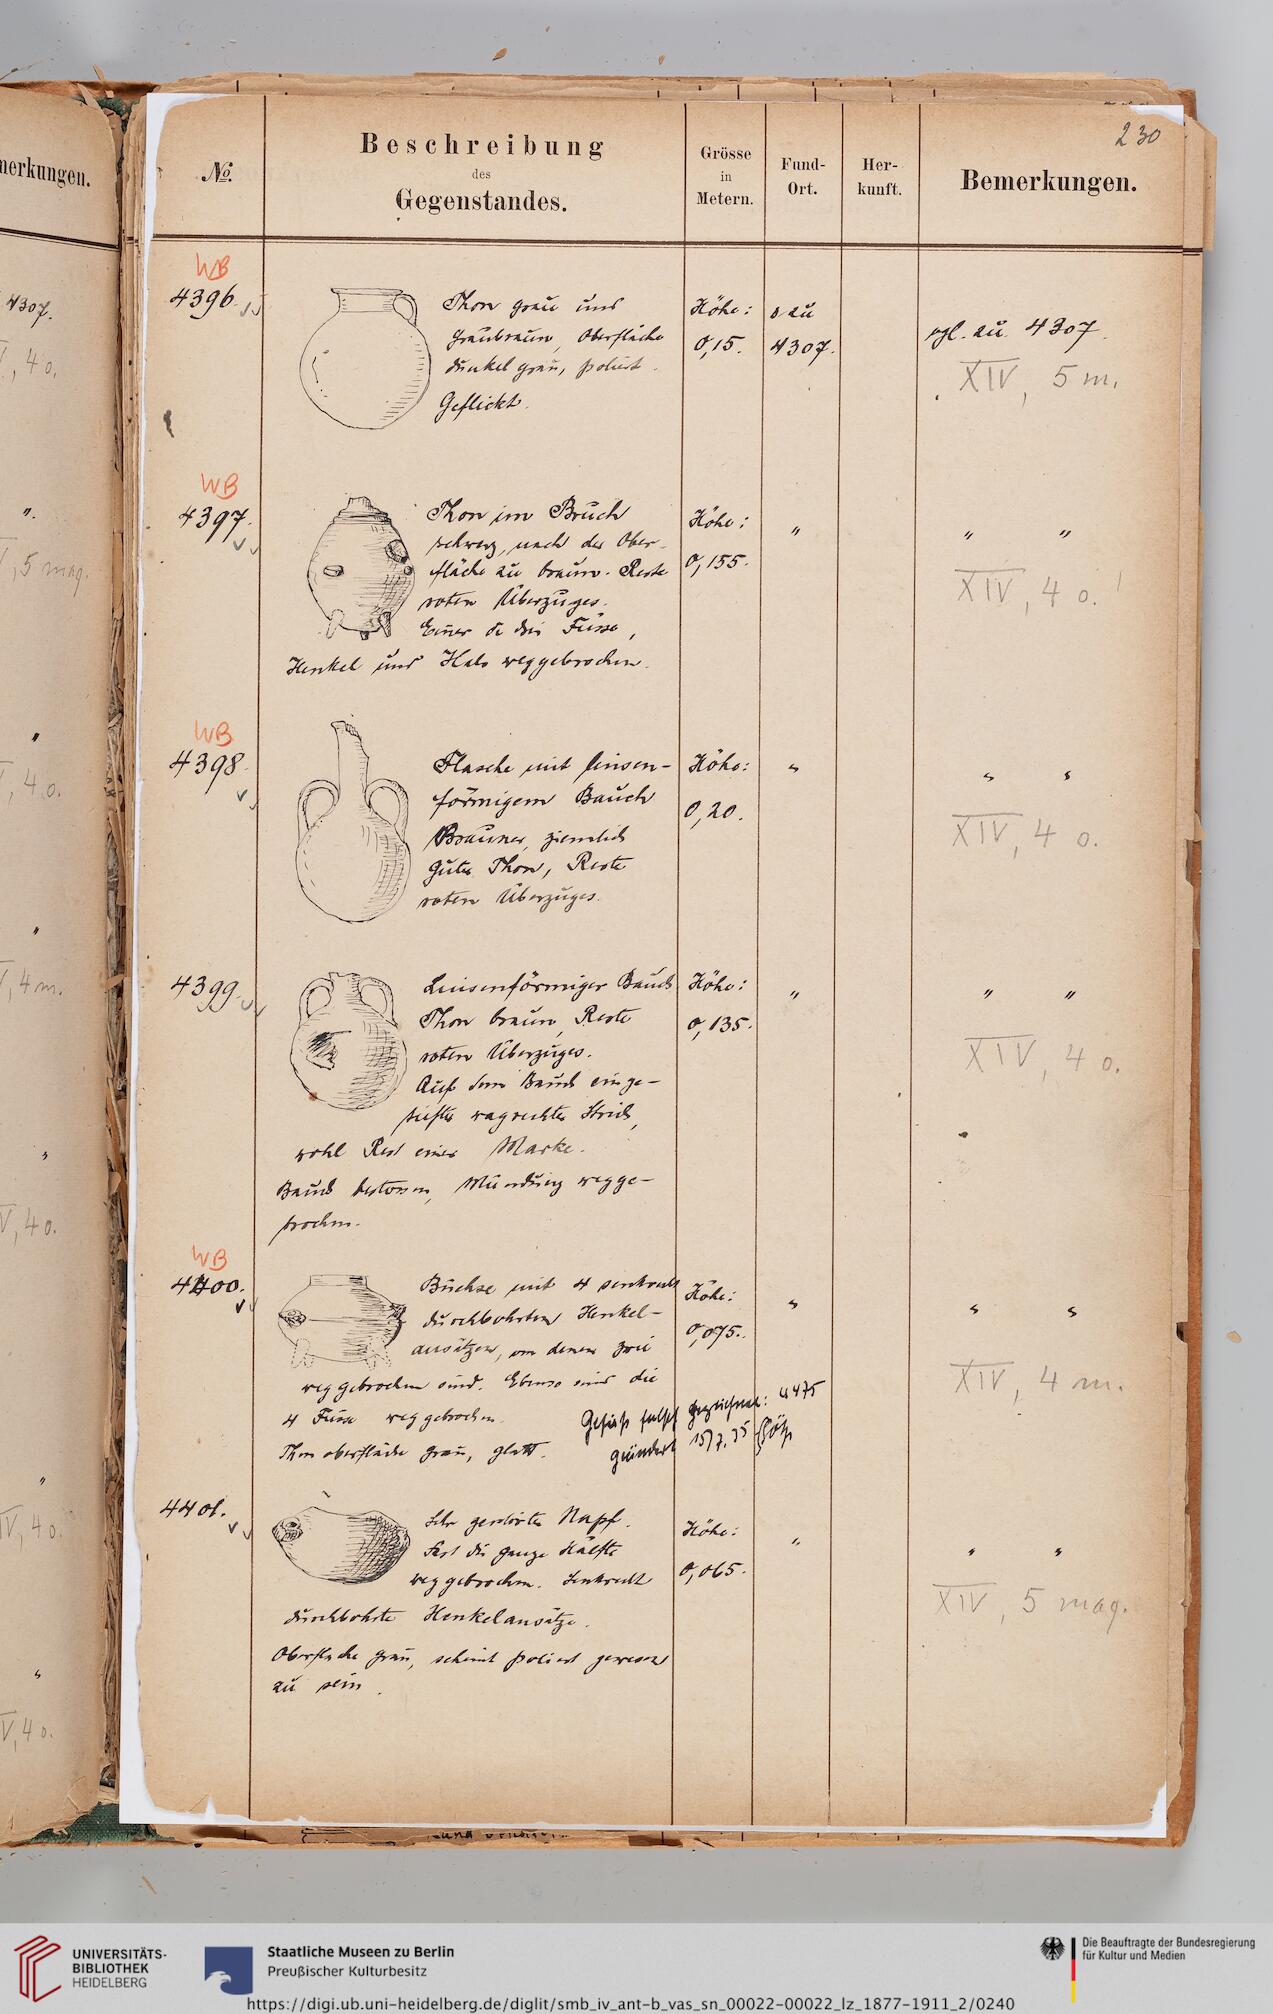 merkungen.
4307.
, 4 o.
".
, 5 mag.
"
, 4 o.
"
, 4 m.
"
V, 4 o.
"
IV, 4 o.
"
V, 4 o.
230
No.
Beschreibung
des
Gegenstandes.
Grösse
in
Metern.
Fund-
Ort.
Her-
kunft.
Bemerkungen.
WB
4396.
Thon grau und
graubraun, Oberfläche
dunkel grau, poliert.
Geflickt.
Höhe:
0,15.
s zu
4307.
vgl. zu 4307.
XIV, 5 m.
WB
4397.
Thon im Bruch
schwarz, nach der Ober-
fläche zu braun. Reste
roten Überzuges.
Einer de drei Füsse,
Henkel und Hals weggebrochen.
Höhe:
0,155.
"
" "
XIV, 4 o.
WB
4398.
Flasche mit linsen-
förmigem Bauch
Brauner, ziemlich
guter Thon, Reste
roten Überzuges.
Höhe:
0,20.
"
" "
XIV, 4 o.
4399.
Linsenförmiger Bauch
Thon braun, Reste
roten Überzuges.
Auf dem Bauch einge-
tiefter wagrechter Strich,
wohl Rest einer Marke.
Bauch bestossen, Mündung wegge-
brochen.
Höhe:
0,135.
"
" "
XIV, 4 o.
WB
4400.
Büchse mit 4 senkrecht
durchbohrten Henkel-
ansätzen, von denen zwei
weggebrochen sind. Ebenso sind die
4 Füsse weggebrochen.
Thonoberfläche grau, glatt.
Höhe:
0,075.
"
" "
XIV, 4 m.
Gefäß falsch gezeichnet: 4475
geändert 15/7.35
4401.
Sehr zerstörter Napf.
Fast die ganze Hälfte
weggebrochen. Senkrecht
durchbohrte Henkelansätze.
Oberfläche grau, scheint poliert gewesen
zu sein.
Höhe:
0,065.
"
" "
XIV, 5 mag.
UNIVERSITÄTS-
BIBLIOTHEK
HEIDELBERG
Staatliche Museen zu Berlin
Preußischer Kulturbesitz
Die Beauftragte der Bundesregierung
für Kultur und Medien
https://digi.ub.uni-heidelberg.de/diglit/smb_iv_ant-b_vas_sn_00022-00022_lz_1877-1911_2/0240